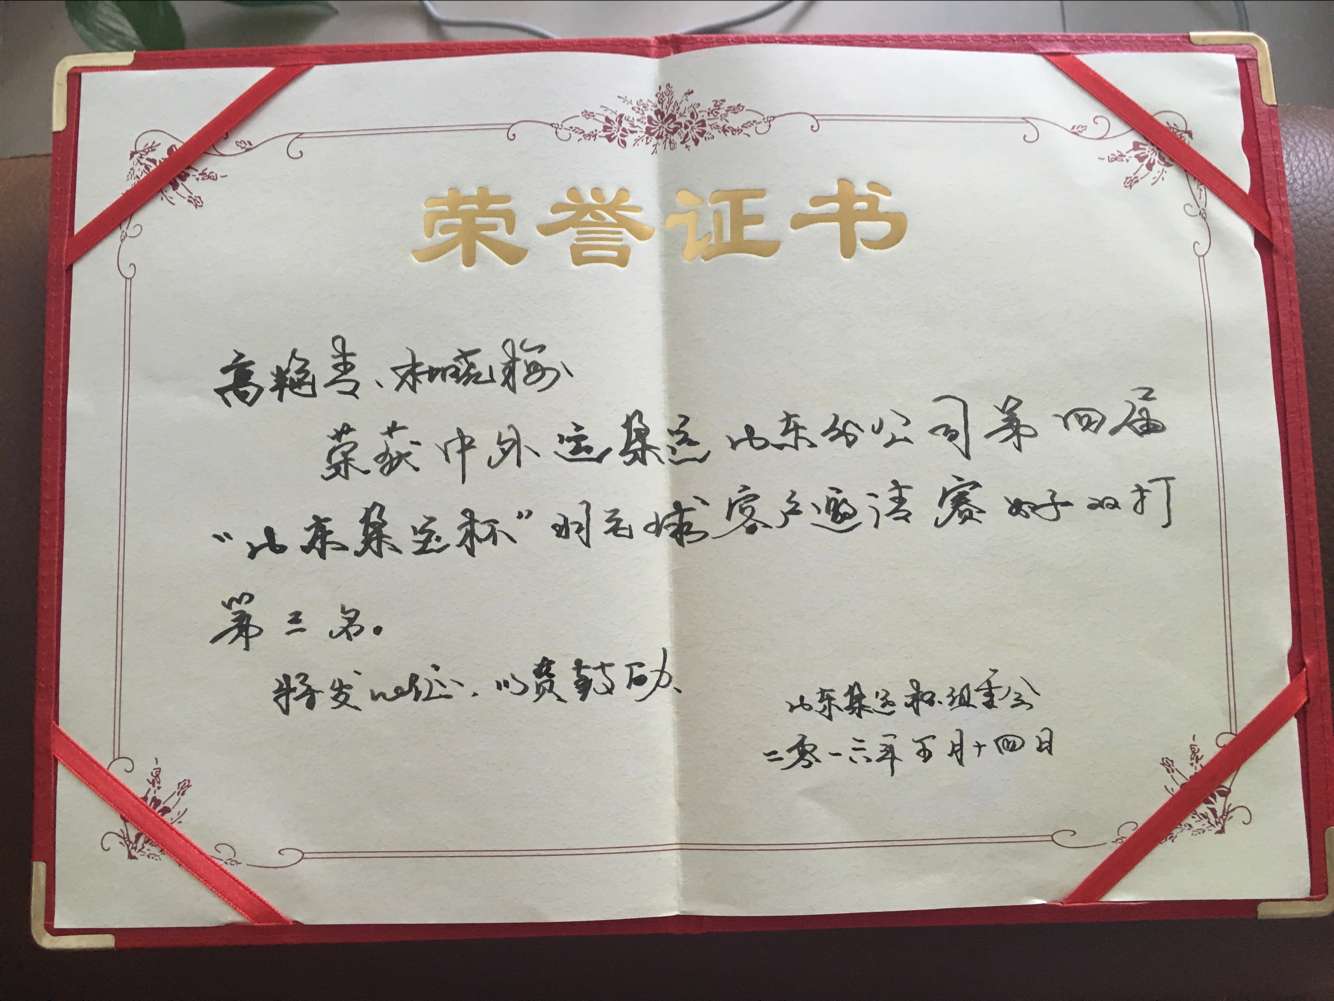 荣誉证书
高艳青、林晓梅
荣获中外运集运山东分公司第四届
“山东集运杯”羽毛球客户邀请赛女子双打
第三名。
特发此证、以资鼓励、
山东集运杯组委会
二零一六年五月十四日